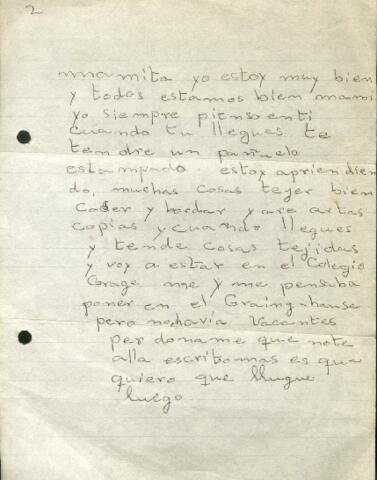 2
mamita yo estoy muy bien
y todos estamos bien mami
yo siempre pienso en ti
cuando tu llegues te
tendre un pañuelo
estampado. estoy apriendien
do, muchas cosas tejer bien
Coser y bordar y are artas
copias y cuando llegues
y tende cosas tejidas
y voy a estar en el Colegio
me y me pensaba
poner en el Graing-hause
pero nohavia vacantes
perdoname que note
alla escritomas es que
quiero que llugue
luego